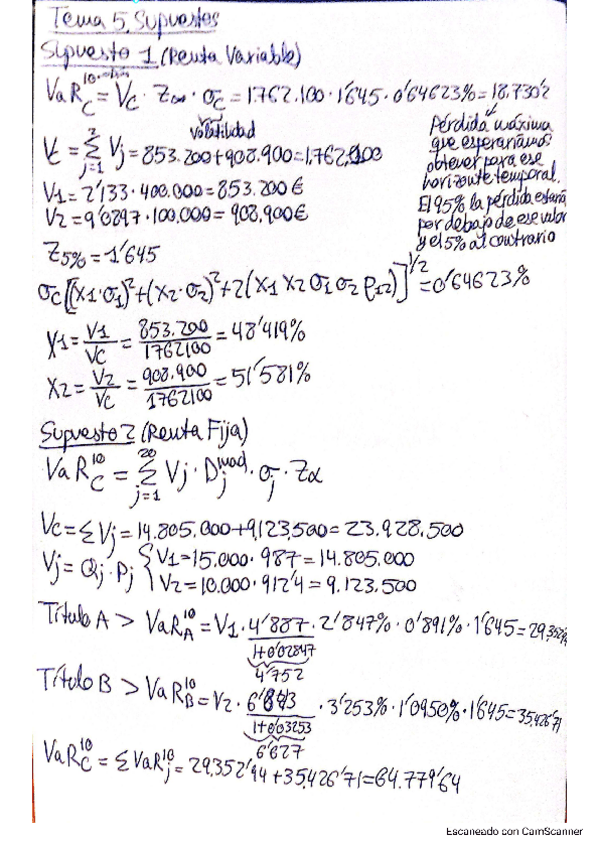 Tema 5. Supuestos
Supuesto 1 (Renta Variable)
VaR_C^10 = V_C · Z_α · σ_C = 1762.100 · 1'645 · 0'64623% = 18.730'2
volatilidad
Pérdida máxima
que esperaríamos
obtener para ese
horizonte temporal.
El 95% la pérdida estará
por debajo de ese valor
y el 5% al contrario
V_C = Σ_{j=1}^2 V_j = 853.200 + 908.900 = 1,762.100
V1 = 2'133 · 400.000 = 853.200€
V2 = 9'0897 · 100,000 = 908,900€
Z5% = 1'645
σ_C [(X1·σ1)² + (X2·σ2)² + 2(X1 X2 σ1 σ2 ρ12)]^1/2 = 0'64623%
X1 = V1/VC = 853.200/1762100 = 48'419%
X2 = V2/VC = 908.900/1762100 = 51'581%
Supuesto 2 (Renta Fija)
VaR_C^10 = Σ_{j=1}^20 V_j · D_j^mod · σ_j · Zα
VC = Σ V_j = 14.805.000 + 9,123,500 = 23.928.500
V_j = Q_j · P_j { V1 = 15.000 · 987 = 14.805.000
V2 = 10.000 · 912'4 = 9.123.500
Título A > VaR_A^10 = V1 · 4'887/1+0'02847 · 2'847% · 0'891% · 1'645 = 29,352'94
4'752
Título B > VaR_B^10 = V2 · 6'843/1+0'03253 · 3'253% · 1'0950% · 1'645 = 35,426'71
6'627
VaR_C^10 = Σ VaR_j^10 = 29,352'94 + 35,426'71 = 64.779'64
Escaneado con CamScanner